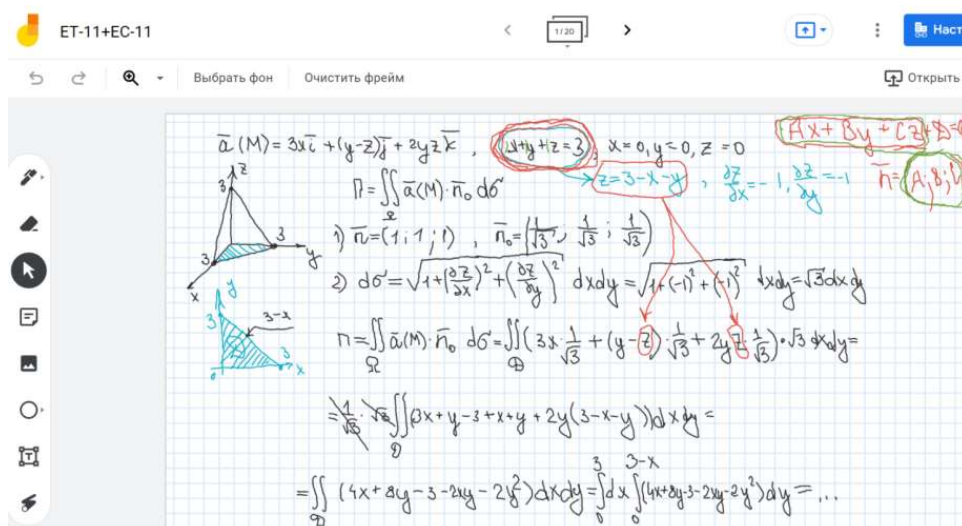 ET-11+EC-11
1/20
Наст
Выбрать фон
Очистить фрейм
Открыть
ā(M) = 3x ī + (y-z) j̄ + 2yz k̄ , x+y+z=3, x=0, y=0, z=0
Ax + By + Cz + D =
z = 3-x-y , ∂z/∂x = -1, ∂z/∂y = -1
n̄ = (A; B;
П = ∬_Ω ā(M)·n̄₀ dσ
1) n̄ = (1; 1; 1) , n̄₀ = (1/√3, 1/√3; 1/√3)
2) dσ = √(1+(∂z/∂x)²+(∂z/∂y)²) dxdy = √(1+(-1)²+(-1)²) dxdy = √3 dxdy
П = ∬_Ω ā(M)·n̄₀ dσ = ∬_D (3x·1/√3 + (y-z)·1/√3 + 2yz·1/√3)·√3 dxdy =
= 1/√3·√3 ∬_D (3x+y-3+x+y+2y(3-x-y))dxdy =
= ∬_D (4x+8y-3-2xy-2y²)dxdy = ∫₀³dx ∫₀^(3-x) (4x+8y-3-2xy-2y²)dy = ...
z
3
3
y
3
x
y
3
3-x
D
3
0
x